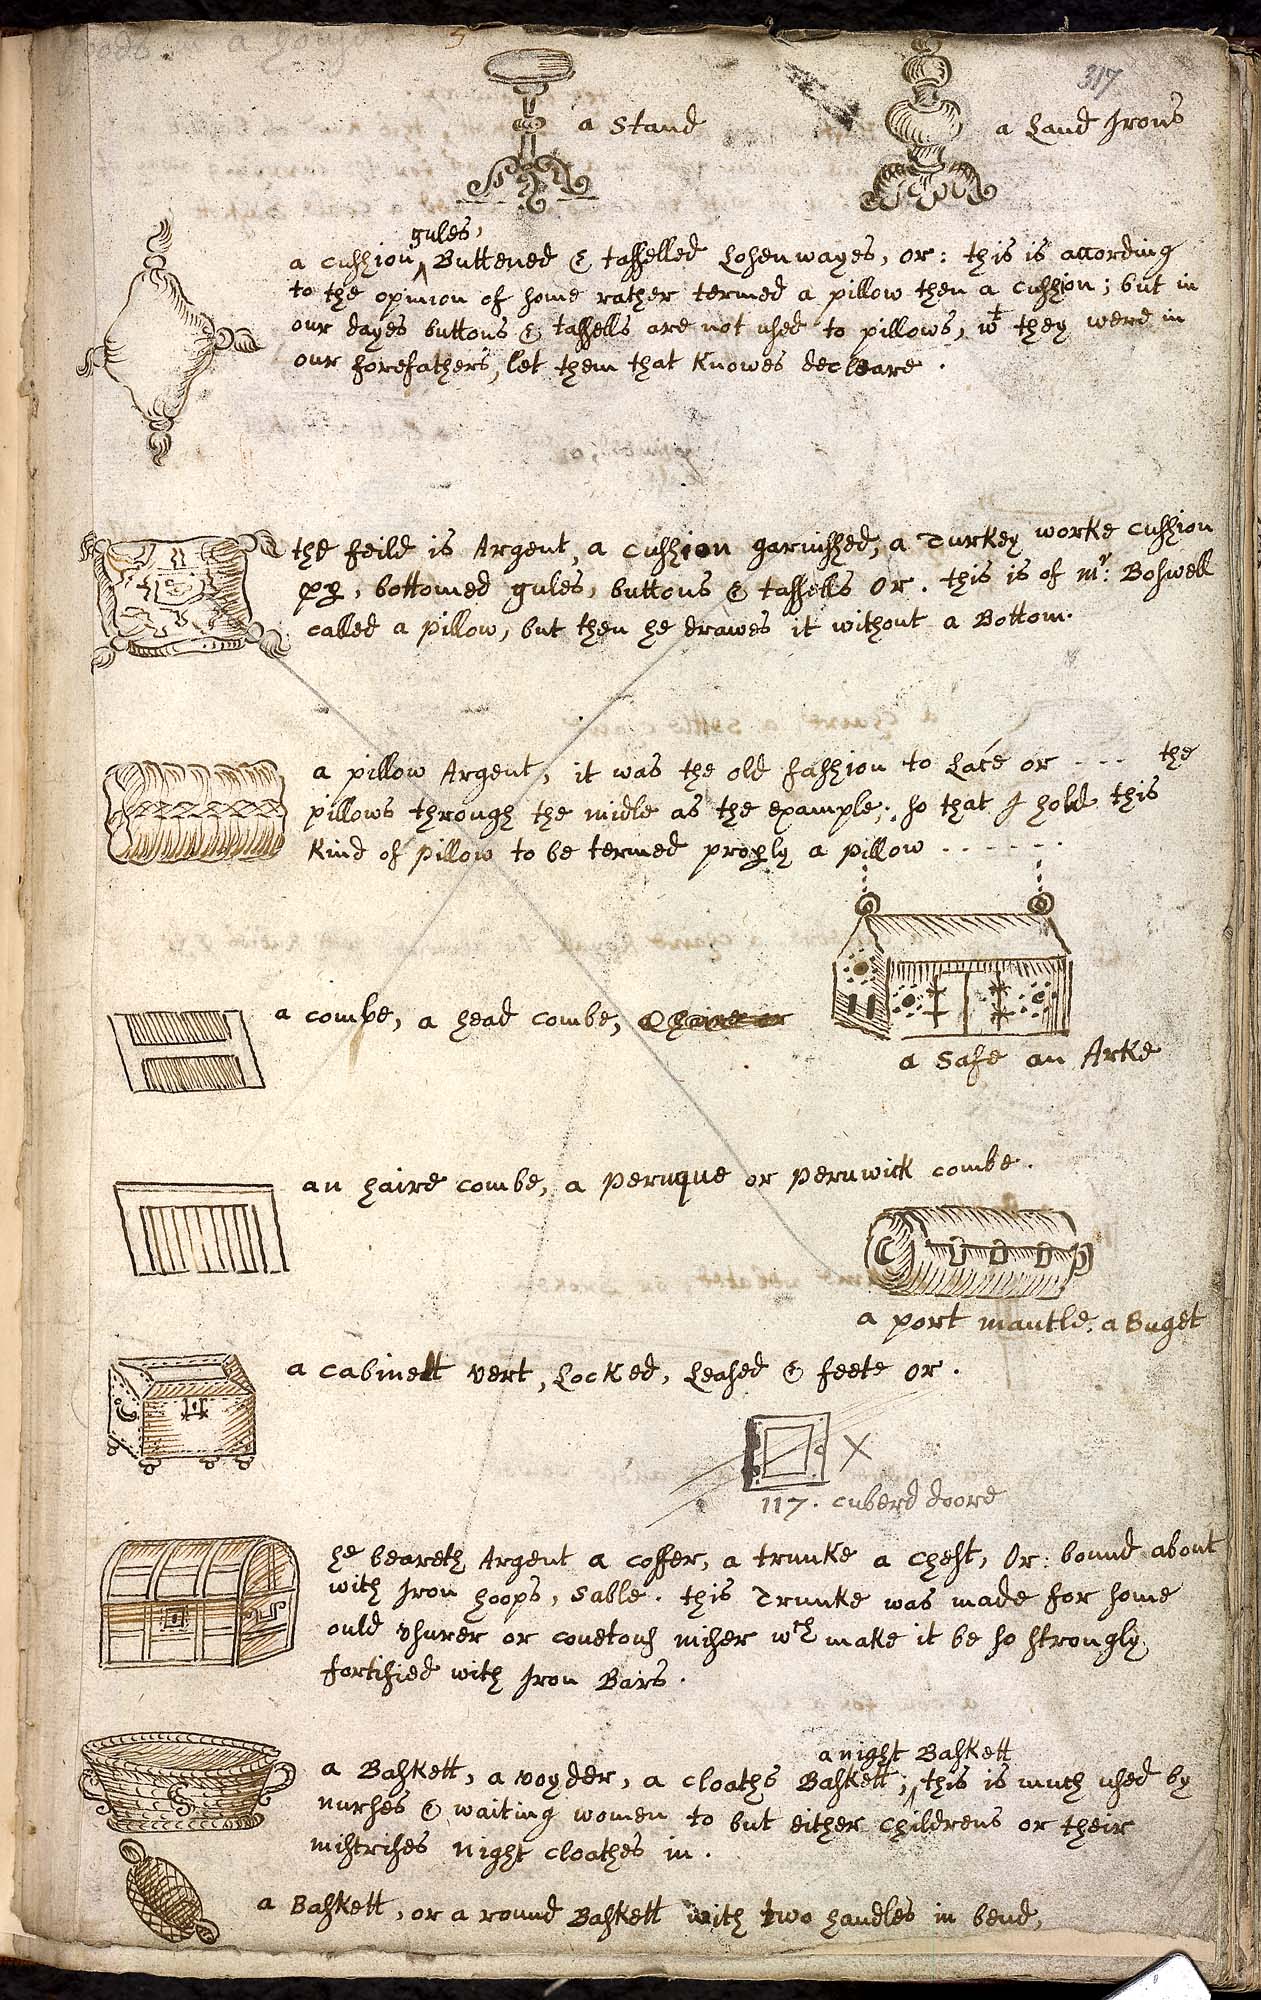 317
a Stand
a Land Irons
gules,
a cushion ^ Buttened & tasselled Losenwayes, or: this is according
to the opinion of some rather termed a pillow then a cushion; but in
our dayes buttons & tassells are not used to pillows, wt they were in
our forefathers, let them that Knowes decleare.
the feild is Argent, a cushion garnished, a Turkey worke cushion
pp, bottomed gules, buttons & tassells Or. this is of mr: Boswell
called a pillow, but then he drawes it without a Bottom.
a pillow Argent, it was the old fashion to Lace or - - - the
pillows through the midle as the example; so that I hold this
Kind of pillow to be termed proply a pillow - - - - - -
a combe, a head combe,
a Safe an Arke
an haire combe, a peruque or peruwick combe.
a port mantle, a Buget
a cabinett vert, Locked, Leased & feete or.
117. cuberd doore
he beareth Argent a coffer, a trunke a Chest, Or: bound about
with Iron hoops, Sable. this Trunke was made for some
ould Usurer or covetous miser wch make it be so strongly
fortified with Iron Bars.
a night Baskett
a Baskett, a voyder, a cloaths Baskett; ^ this is much used by
nurses & waiting women to but either Childrens or their
mistrises night cloathes in.
a Baskett, or a round Baskett with two handles in bend,